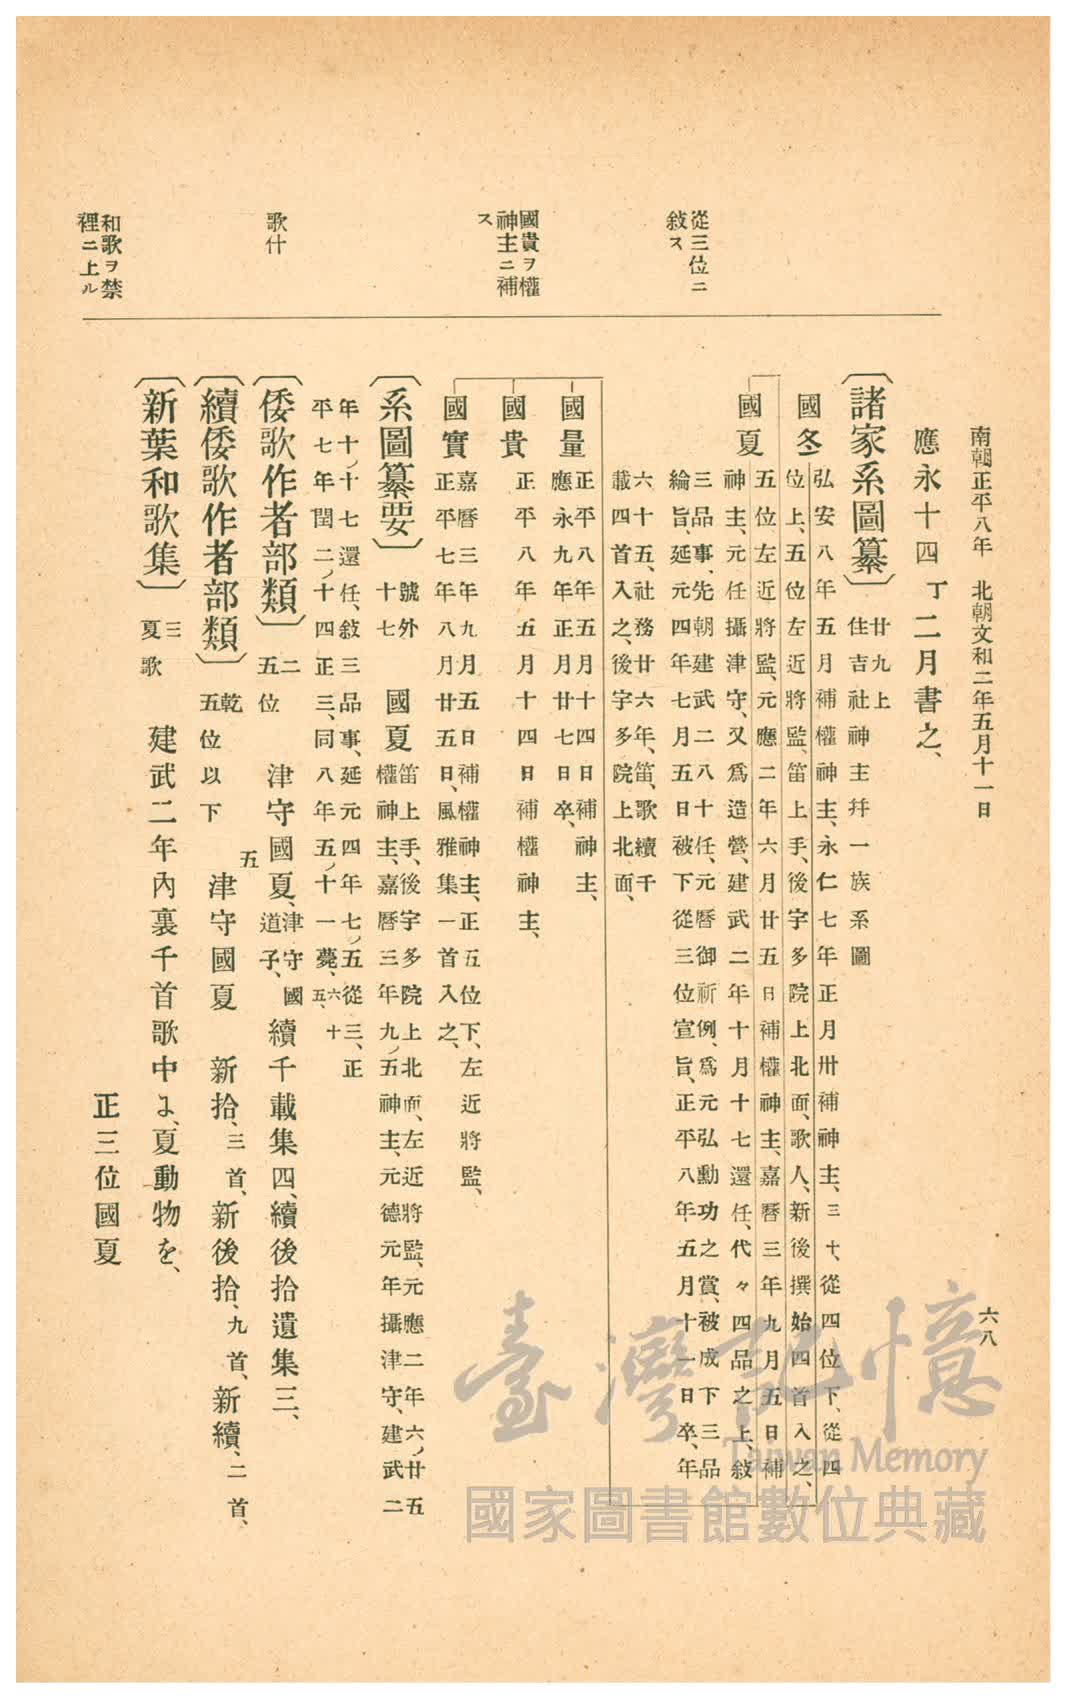 南朝正平八年 北朝文和二年五月十一日
六八
從三位ニ
敍ス
國貴ヲ權
神主ニ補
ス
歌什
和歌ヲ禁
裡ニ上ル
應永十四丁二月書之、
〔諸家系圖纂〕廿九上 住吉社神主幷一族系圖
國冬
弘安八年五月補權神主、永仁七年正月卅補神主、三十、從四位下、從四
位上、五位左近將監、笛上手、後宇多院上北面、歌人、新後撰始四首入之、
國夏
五位左近將監、元應二年六月廿五日補權神主、嘉曆三年九月五日補
神主、元任攝津守、又爲造營、建武二年十月十七還任、代々四品之上、敍
三品事、先朝建武二八十任、元曆御祈例、爲元弘勳功之賞、被成下三品
綸旨、延元四年七月五日被下從三位宣旨、正平八年五月十一日卒、年
六十五、社務廿六年、笛、歌續千
載四首入之、後宇多院上北面、
國量
正平八年五月十四日補神主、
應永九年正月廿七日卒、
國貴
正平八年五月十四日補權神主、
國實
嘉曆三年九月五日補權神主、正五位下、左近將監、
正平七年八月廿五日、風雅集一首入之、
〔系圖纂要〕號外十七 國夏
笛上手、後宇多院上北面、左近將監、元應二年六ノ廿五
權神主、嘉曆三年九ノ五神主、元德元年攝津守、建武二
年十ノ十七還任、敍三品事、延元四年七ノ五從三、正
平七年閏二ノ十四正三、同八年五ノ十一薨、六十五、
〔倭歌作者部類〕二五位 津守國夏、津守國道子、 續千載集四、續後拾遺集三、
〔續倭歌作者部類〕乾五位以下 五 津守國夏 新拾、三首、新後拾、九首、新續、二首、
〔新葉和歌集〕三夏歌 建武二年內裏千首歌中に、夏動物を、
正三位國夏
臺灣記憶
Taiwan Memory
國家圖書館數位典藏